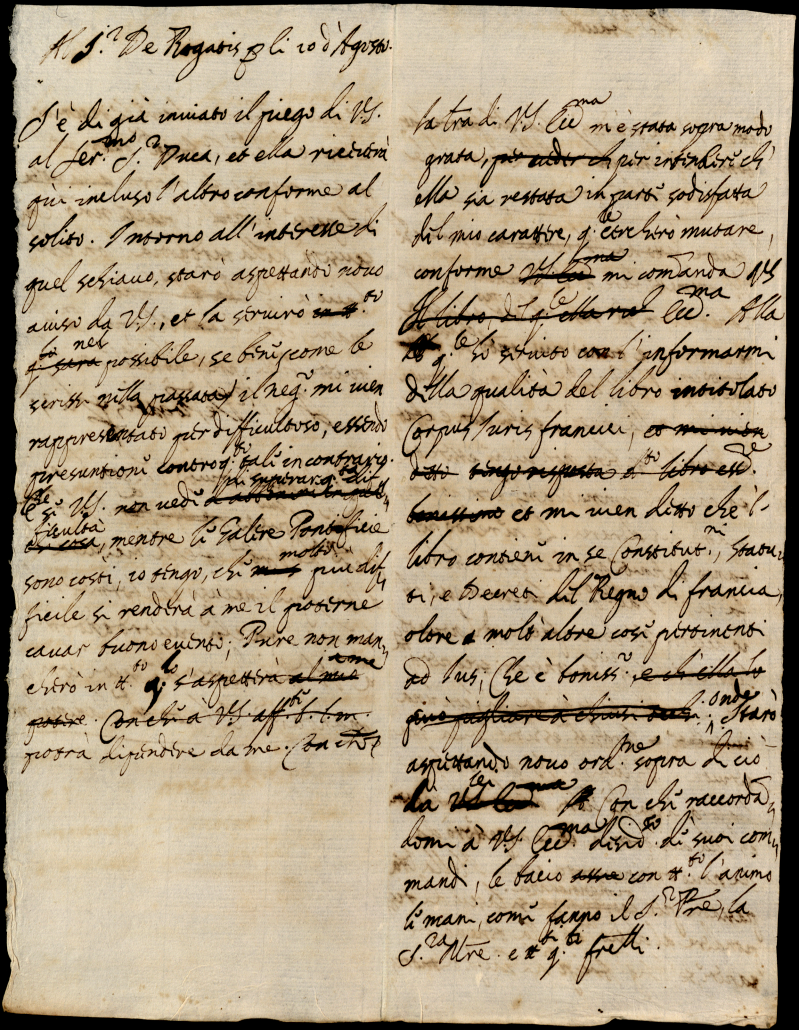 Al S.r De Rogatis p li 10 d'Agosto.
S'è di già inviato il piego di V.S.
al Ser.mo S.r Duca, et ella riceverà
qui incluso l'altro conforme al
solito. Intorno all'interesse di
quel schiavo, starò aspettando novo
aviso da V.S., et la servirò in tt.to
possibile, se bene, come le
scrissi nella passata, il neg.o mi vien
rappresentato per difficultoso, essendo
presuntioni tali in contrario.
Se V.S. non vede
difficultà, mentre le Galere Pontificie
sono costì, io tengo, che molto più dif=
ficile si renderà à me il poterne
cavar buono evento; Pure non man=
cherò in tt.to q.to s'aspetterà a me
potere. Con che a V.S. aff.te b. l. m.
potrà dipendere da me. Con che
la tra di V.S. Ecc.ma m'è stata sopra modo
grata, per intendere ch'
ella sia restata in parte sodisfatta
del mio carattere, q.le cercherò mutare,
conforme mi comanda V.S.
Il libro, Ecc.ma. Alla
q.le hò servito con l'informarmi
della qualità del libro intitolato
Corpus Iuris francici, et mi vien
detto tengo risposta libro
bonissimo et mi vien detto che 'l
libro contiene in se Constitut.ni, statu=
ti, e Decreti del Regno di francia,
oltre a molte altre cose pertinenti
ad Ius, Che è boniss.o, e ch'ella lo
può pigliare à chius'occhi; onde Starò
aspettando novo ord.ne sopra di ciò
da Con che raccordan=
domi à V.S. Ecc.ma de suoi com=
mandi, le bacio con tt.to l'animo
le mani, come fanno il S.r Pre, la
S.ra Mre e tt.i q.ti frelli.